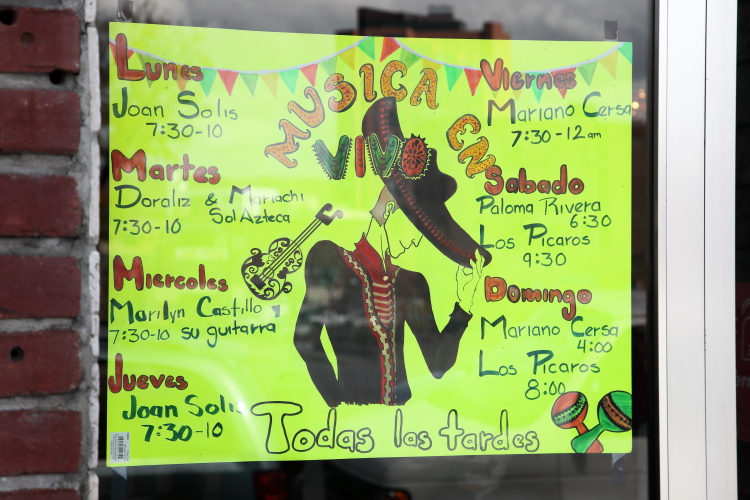 MUSICA EN
VIVO
Lunes
Joan Solis
7:30-10
Martes
Doraliz & Mariachi
Sol Azteca
7:30-10
Miercoles
Marilyn Castillo y
7:30-10 su guitarra
Jueves
Joan Solis
7:30-10
Viernes
Mariano Cersa
7:30-12am
Sabado
Paloma Rivera
6:30
Los Picaros
9:30
Domingo
Mariano Cersa
4:00
Los Picaros
8:00
Todas las tardes